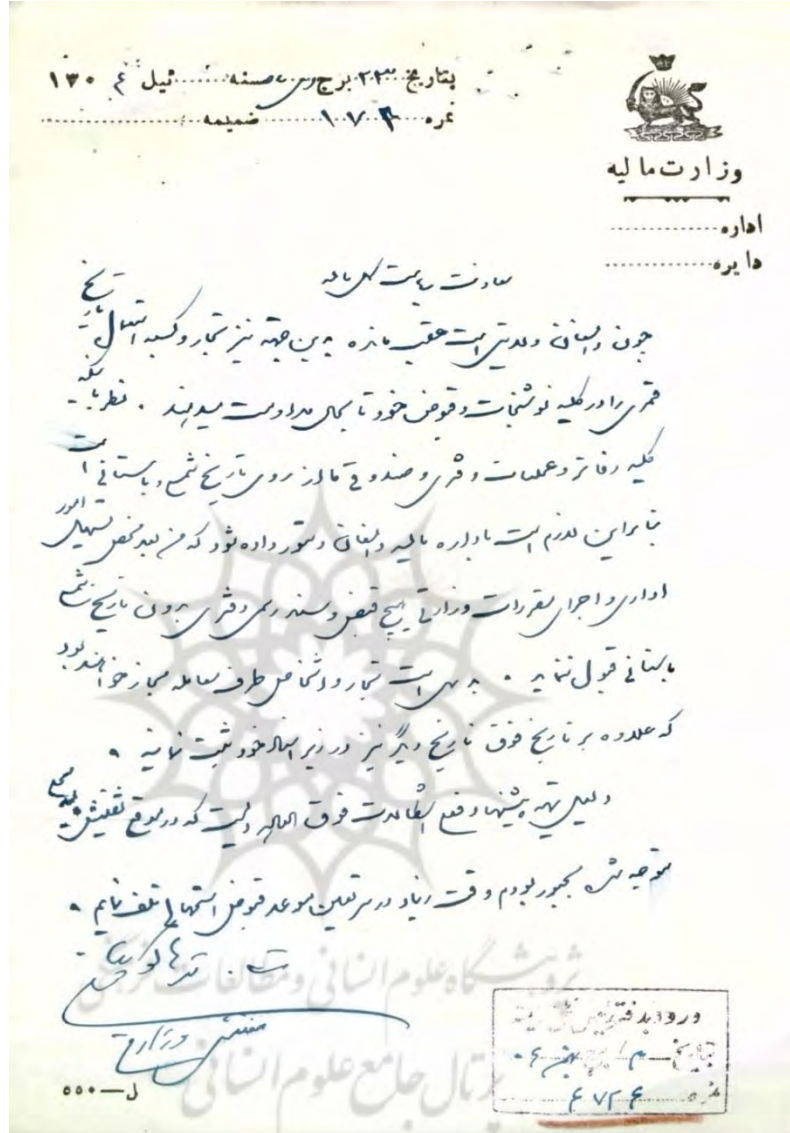 بتاریخ ۲۳ برج دی ماه سنه ئیل ۱۳۰۴
نمره ۱۷۴ ضمیمه
وزارت مالیه
اداره
دایره
معاونت ریاست کل مالیه
چون ولایتی است عقب مانده به این جهة نیز تجار و کسبه استعمال تاریخ
قمری را در کلیه نوشتجات و قبوض خود تا بحال مداومت میدهند . نظر باینکه
کلیه دفاتر و عملیات دفتری و صندوقی ما از روی تاریخ شمسی و باستانی است
بنابراین لازم است باداره مالیه دستور داده شود که من بعد محض تسهیل امور
اداری و اجرای مقررات وزارتی هیچ قبض و سند رسمی و دفتری بدون تاریخ شمسی
باستانی قبول ننماید . بدیهی است تجار و اشخاص طرف معامله مجاز خواهند بود
که علاوه بر تاریخ فوق تاریخ دیگر نیز در زیر اسناد خود ثبت نمایند .
دلیل تهیه پیشنهاد رفع اشکالات فوق الذکر اینست که در موقع تفتیش
متوجه شده مجبور بودم وقت زیاد در سر تعیین موعد قبوض تلف نمایم .
مفتش وزارتی
ورود بدفتر
بتاریخ
نمره ۴۷۲۴
ل—۵۵۰
پژوهشگاه علوم انسانی و مطالعات فرهنگی
پرتال جامع علوم انسانی